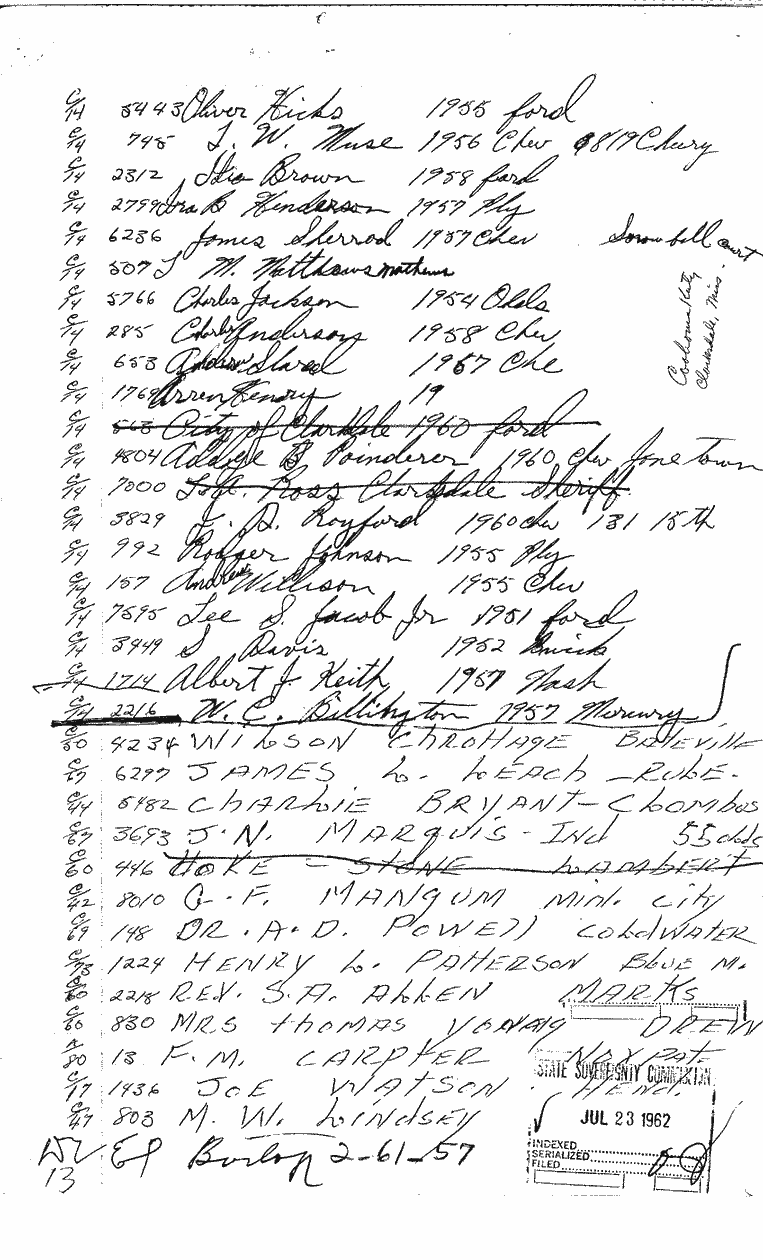 C/14 5443 Oliver Hicks 1955 ford
C/14 745 T. W. Muse 1956 Chev 819 Chevy
C/14 2312 Brown 1958 ford
C/14 2799 Ira B Henderson 1957 Ply
C/14 6236 James Sherrod 1957 Chev Snowball court
C/14 507 M. Matthews mathews
C/14 5766 Charles Jackson 1954 Olds
C/14 285 Charley Anderson 1958 Chev
C/14 653 Andrew 1957 Che
C/14 1769 Henry 19
C/14 563 City of Clarkdale 1960 ford
C/14 4804 B Poinderer 1960 Chev Jonetown
C/14 7000 Ross Clarksdale Sheriff
C/14 3829 Royford 1960 chev 131 15th
C/14 992 Rodger Johnson 1955 Ply
C/14 157 Andrew Willison 1955 Chev
C/14 7595 Lee S. Jacob Jr 1951 ford
C/14 3949 S Davis 1952 Buick
C/14 1714 Albert J. Keith 1957 Nash
C/14 2216 W. C. Billington 1957 Mercury
Clarksdale, Miss.
C/50 4234 WILSON BATEVILLE
C/67 6297 JAMES L. LEACH - RULE.
C/44 5482 CHARLIE BRYANT - Clombus
C/67 3693 J. N. MARQUIS - Ind 55 olds
C/60 446 HOKE - STONE LAMBERT
C/42 8010 G. F. MANGUM Min. City
C/69 148 DR. A. D. POWELL COLDWATER
C/73 1224 HENRY L. PATTERSON Blue M.
C/60 2218 REV. S. A. ALLEN MARKS
C/60 830 MRS THOMAS YOUNG DREW
80 13 F. M. CARPTER NOXPAT.
C/17 1436 JOE WATSON HEND.
C/47 803 M. W. LINDSEY
13 2-61-57
STATE SOVEREIGNTY COMMISSION
JUL 23 1962
INDEXED
SERIALIZED
FILED